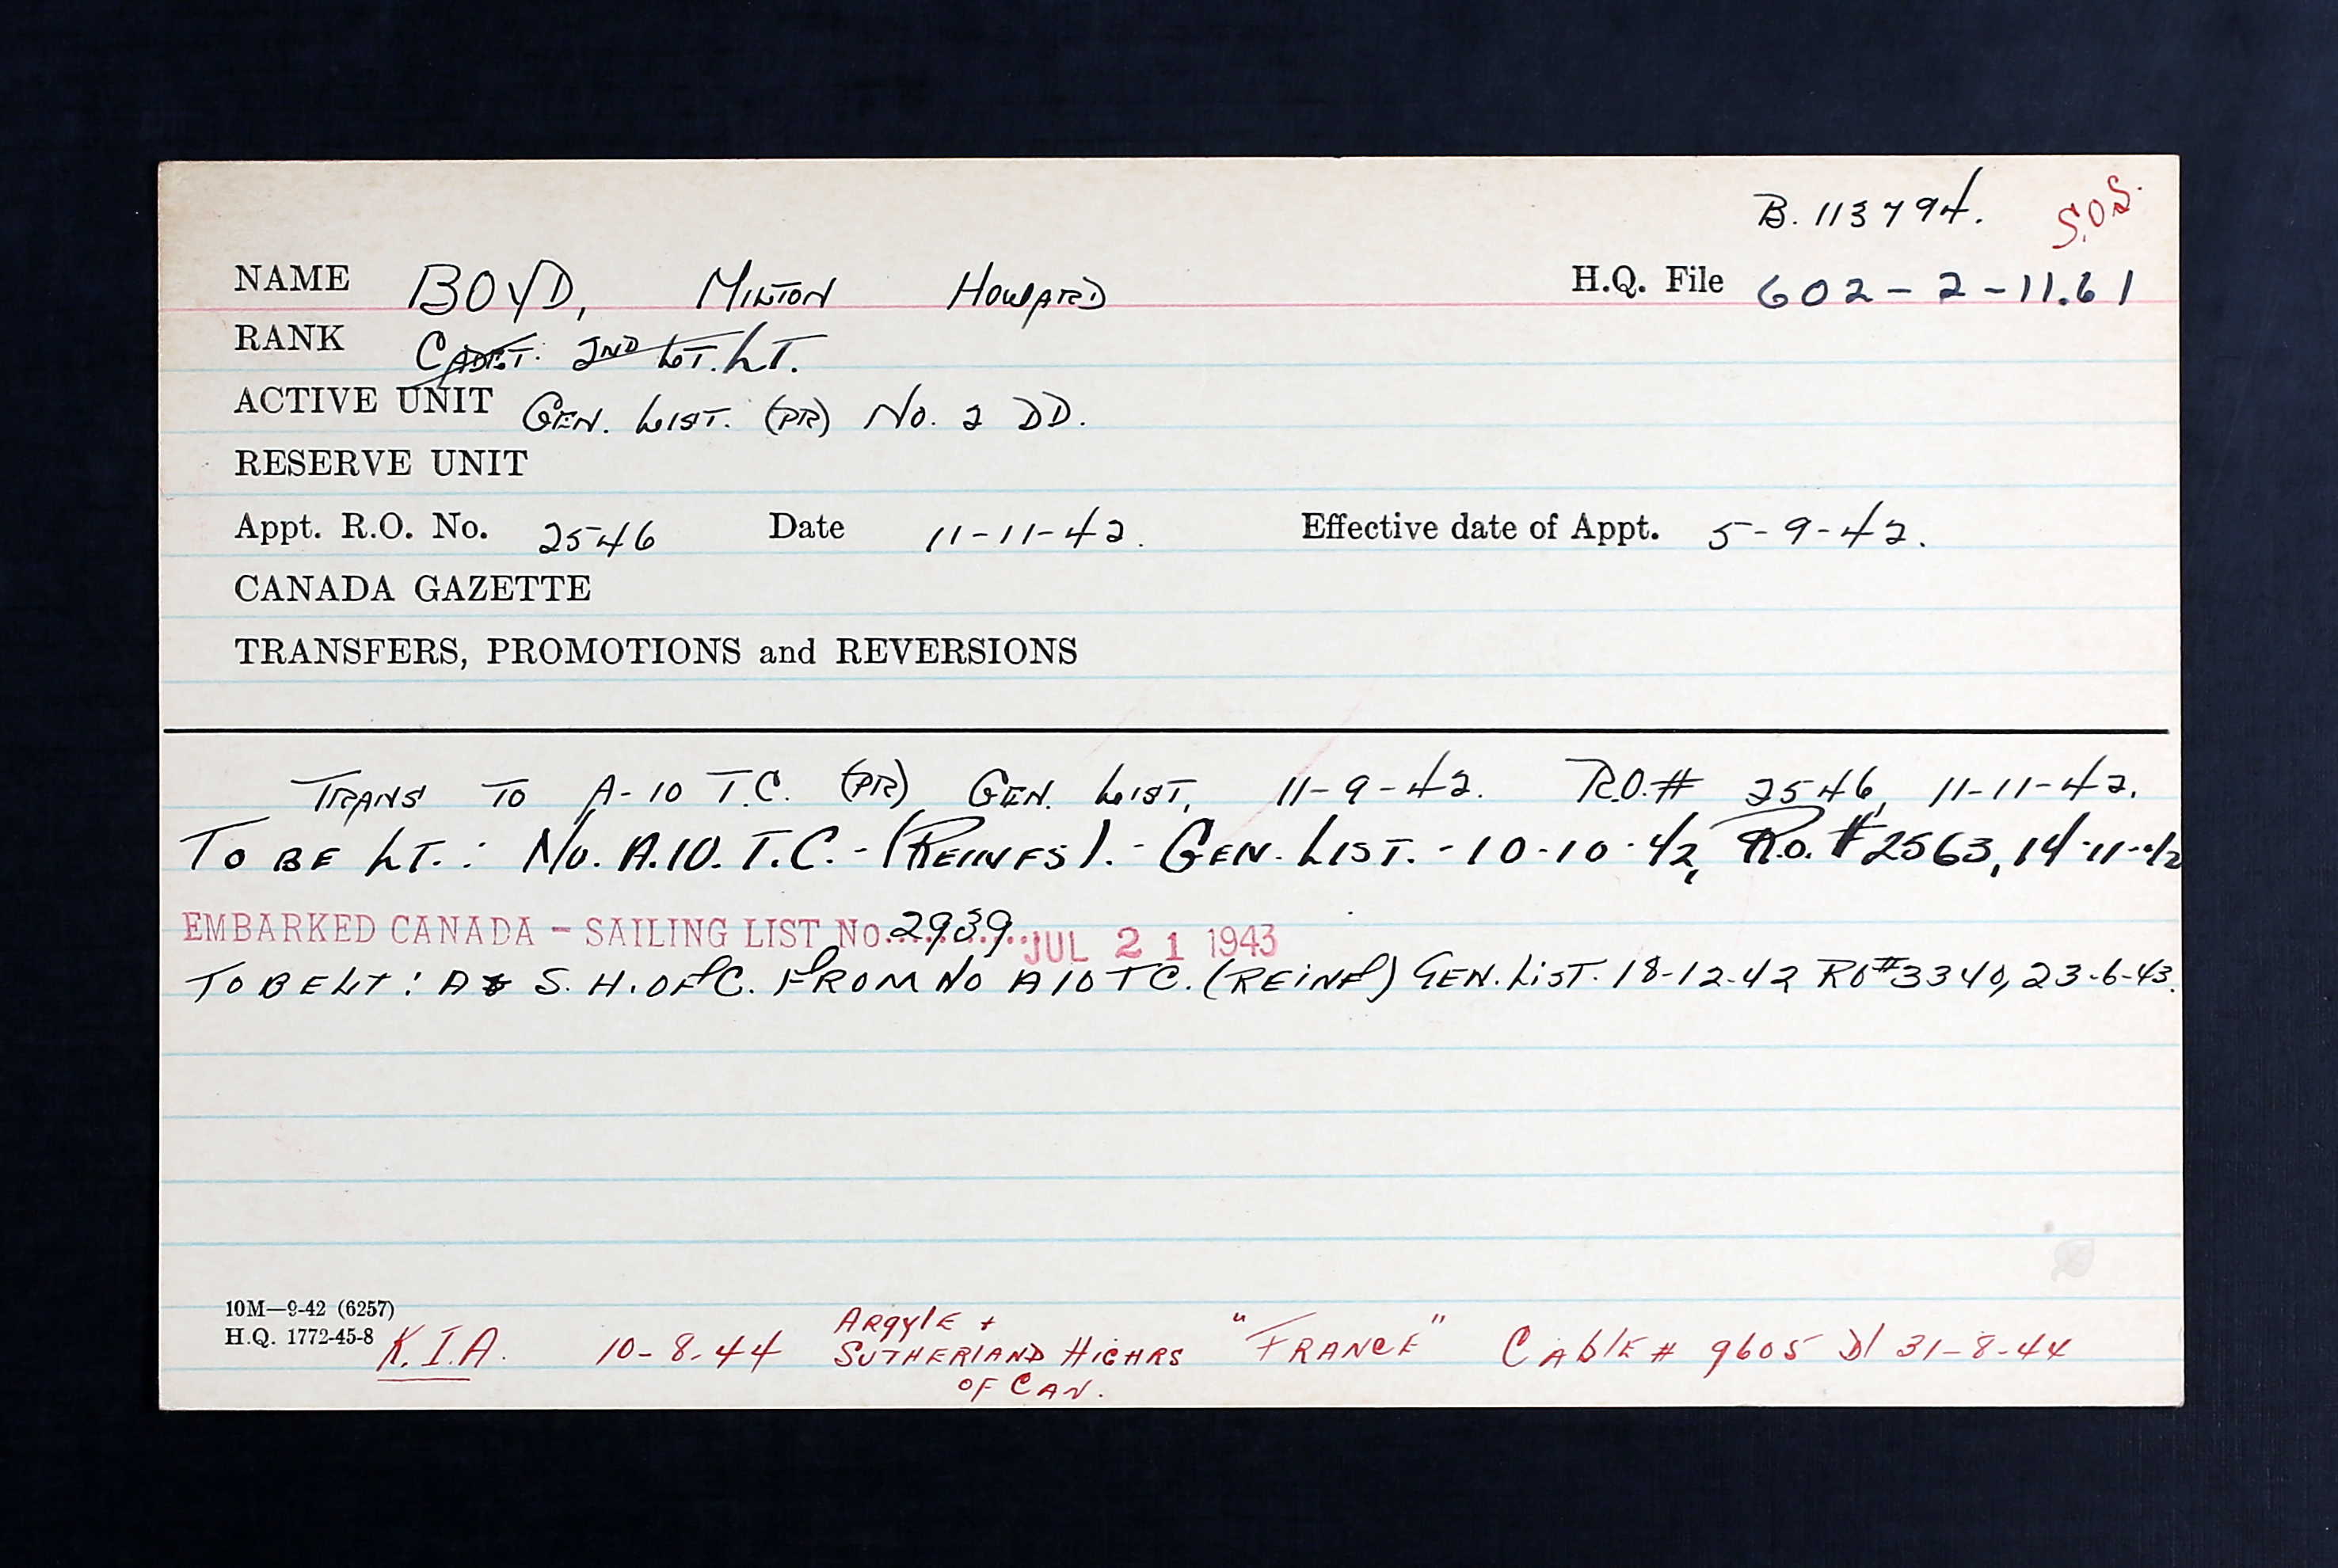 B. 113794. S.O.S.
NAME BOYD, MILTON HOWARD H.Q. File 602-2-11.61
RANK CADET. 2ND LT. LT.
ACTIVE UNIT GEN. LIST. (PR) No. 2 DD.
RESERVE UNIT
Appt. R.O. No. 2546 Date 11-11-42. Effective date of Appt. 5-9-42.
CANADA GAZETTE
TRANSFERS, PROMOTIONS and REVERSIONS
TRANS TO A-10 T.C. (PR) GEN. LIST, 11-9-42. R.O.# 2546, 11-11-42.
TO BE LT.: No. A.10. T.C. - (REINFS). - GEN. LIST. - 10-10-42, R.O. #2563, 14-11-42
EMBARKED CANADA - SAILING LIST No. 2939 JUL 21 1943
TO BE LT: A & S. H. OF C. FROM No A10 TC. (REINF) GEN. LIST. 18-12-42 RO#3340, 23-6-43.
10M—9-42 (6257)
H.Q. 1772-45-8
K.I.A. 10-8-44 ARGYLE + SUTHERLAND HIGHRS OF CAN. "FRANCE" CABLE # 9605 D/ 31-8-44